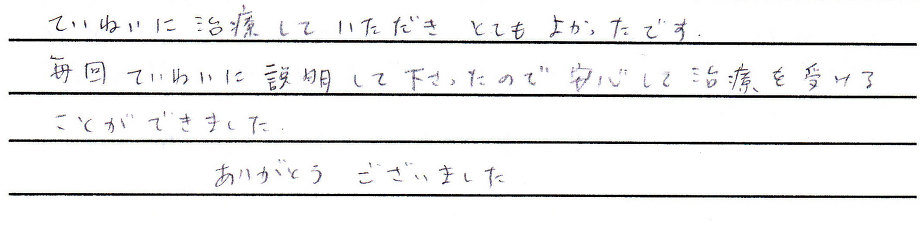 ていねいに治療していただきとてもよかったです.
毎回ていねいに説明して下さったので安心して治療を受ける
ことができました.
ありがとうございました